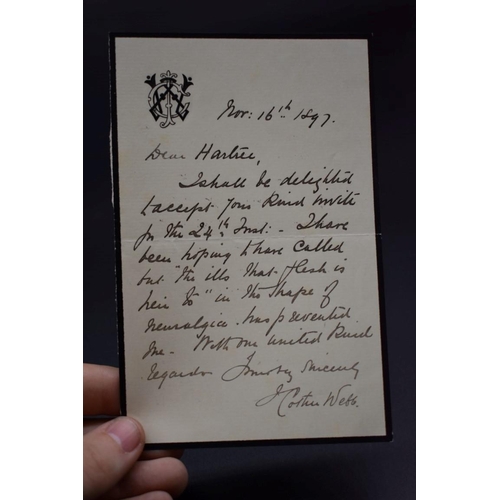 Nov: 16th 1897.
Dear Hartree,
I shall be delighted
to accept your kind invite
for the 24th Inst: - I have
been hoping to have called
but "the ills that flesh is
heir to" in the shape of
neuralgia has prevented
me - With our united kind
regards Yours very sincerely
J Webb.